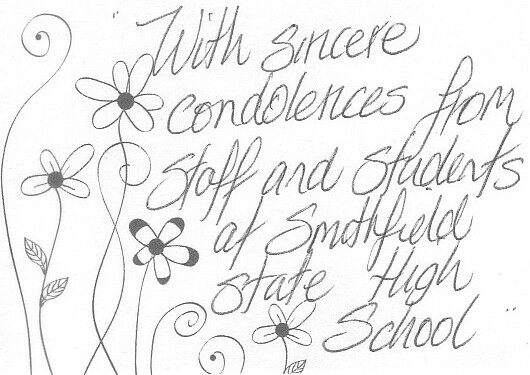 "With sincere
condolences from
Staff and students
at Smithfield
state High
School"